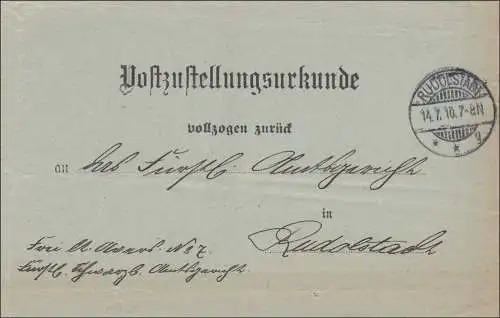 Postzustellungsurkunde
RUDOLSTADT
14.7.10.7-8N
* * g
vollzogen zurück
an das Fürstl. Amtsgericht
in
Rudolstadt
Frei lt. Avers. No 7
Fürstl. Schwarzb. Amtsgericht